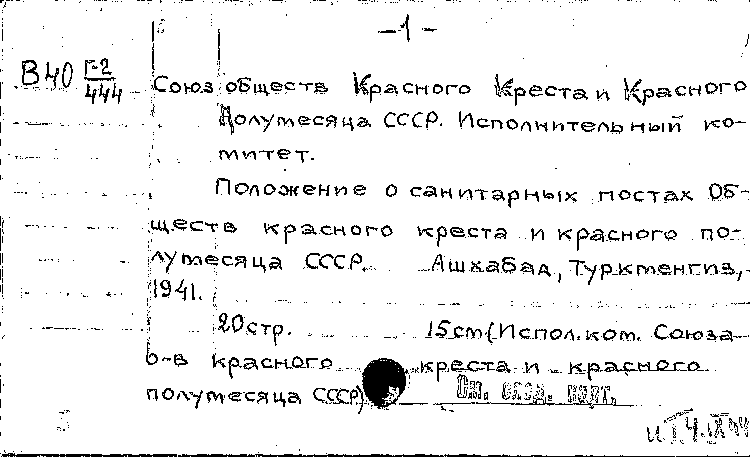 -1-
В40 Г-2
444
Союз обществ Красного Креста и Красного
Полумесяца СССР. Исполнительный ко-
митет.
Положение о санитарных постах Об-
ществ красного креста и красного по-
лумесяца СССР. Ашхабад, Туркменгиз,
1941.
20стр. 15см (Испол. ком. Союза
о-в красного креста и красного
полумесяца СССР)
См. свод. карт.